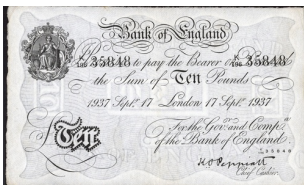 Bank of England
K/196 35848 to pay the Bearer K/196 35848
the Sum of Ten Pounds
1937 Septr. 17 London 17 Septr. 1937
For the Govr. and Compa.
of the Bank of England.
Ten
35848
K. O. Peppiatt
Chief Cashier.